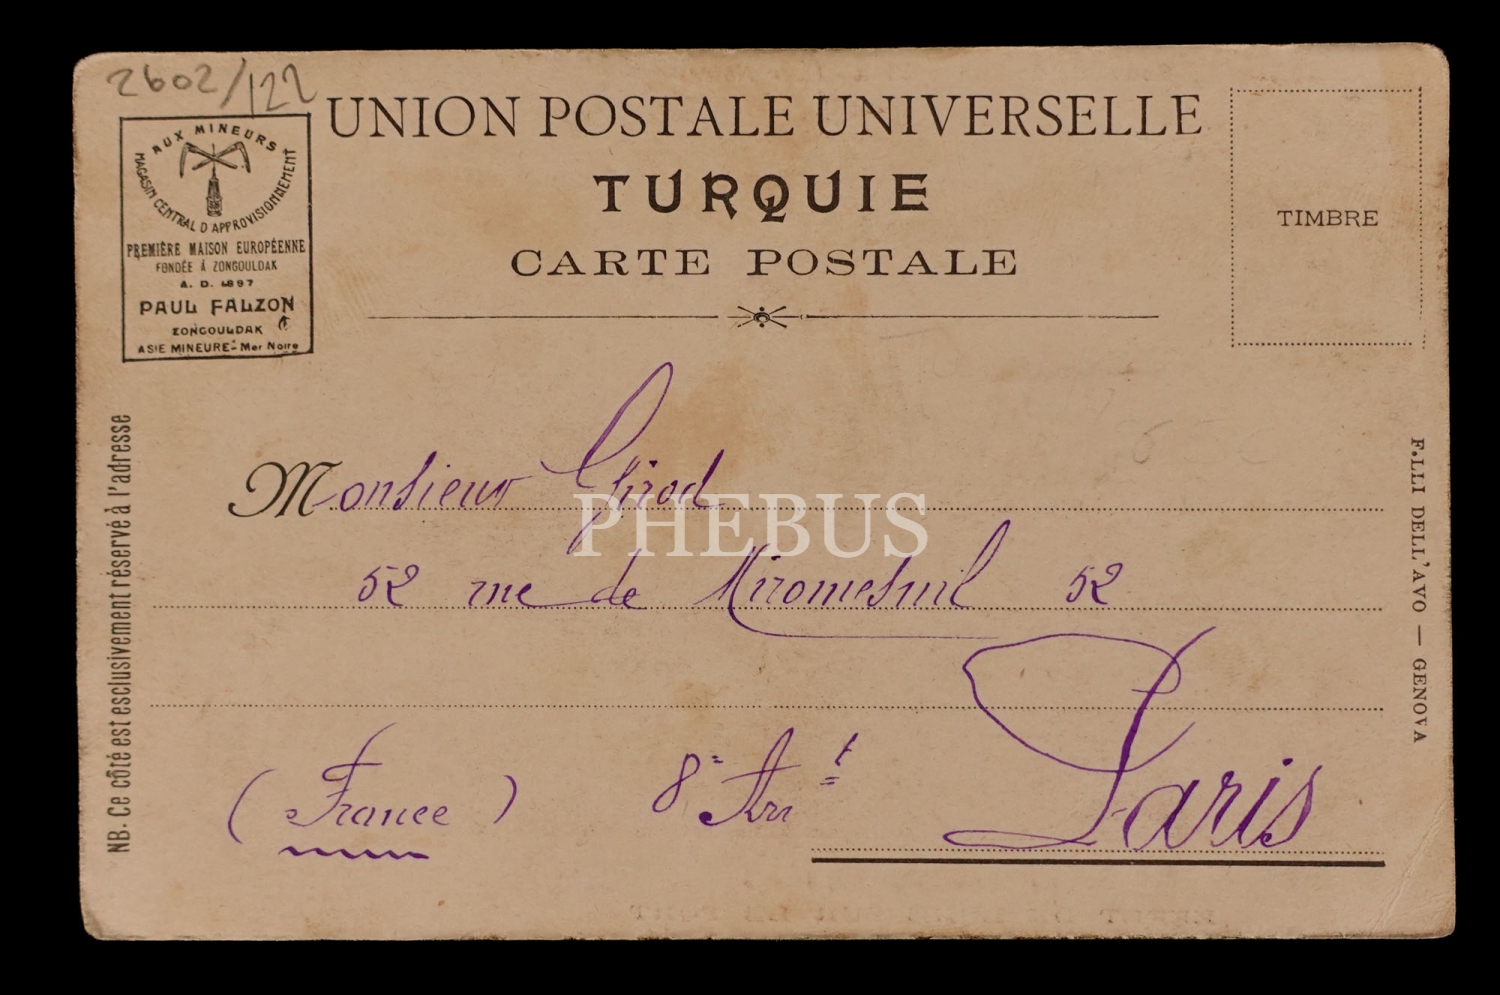 2602/122
AUX MINEURS
MAGASIN CENTRAL D'APPROVISIONNEMENT
PREMIÈRE MAISON EUROPÉENNE
FONDÉE À ZONGOULDAK
A. D. 1897
PAUL FALZON
ZONGOULDAK
ASIE MINEURE - Mer Noire
UNION POSTALE UNIVERSELLE
TURQUIE
CARTE POSTALE
TIMBRE
NB. Ce côté est esclusivement réservé à l'adresse
Monsieur Girod
PHEBUS
52 rue de Miromesnil 52
Paris
8e Arrt
(France)
F.LLI DELL'AVO — GENOVA